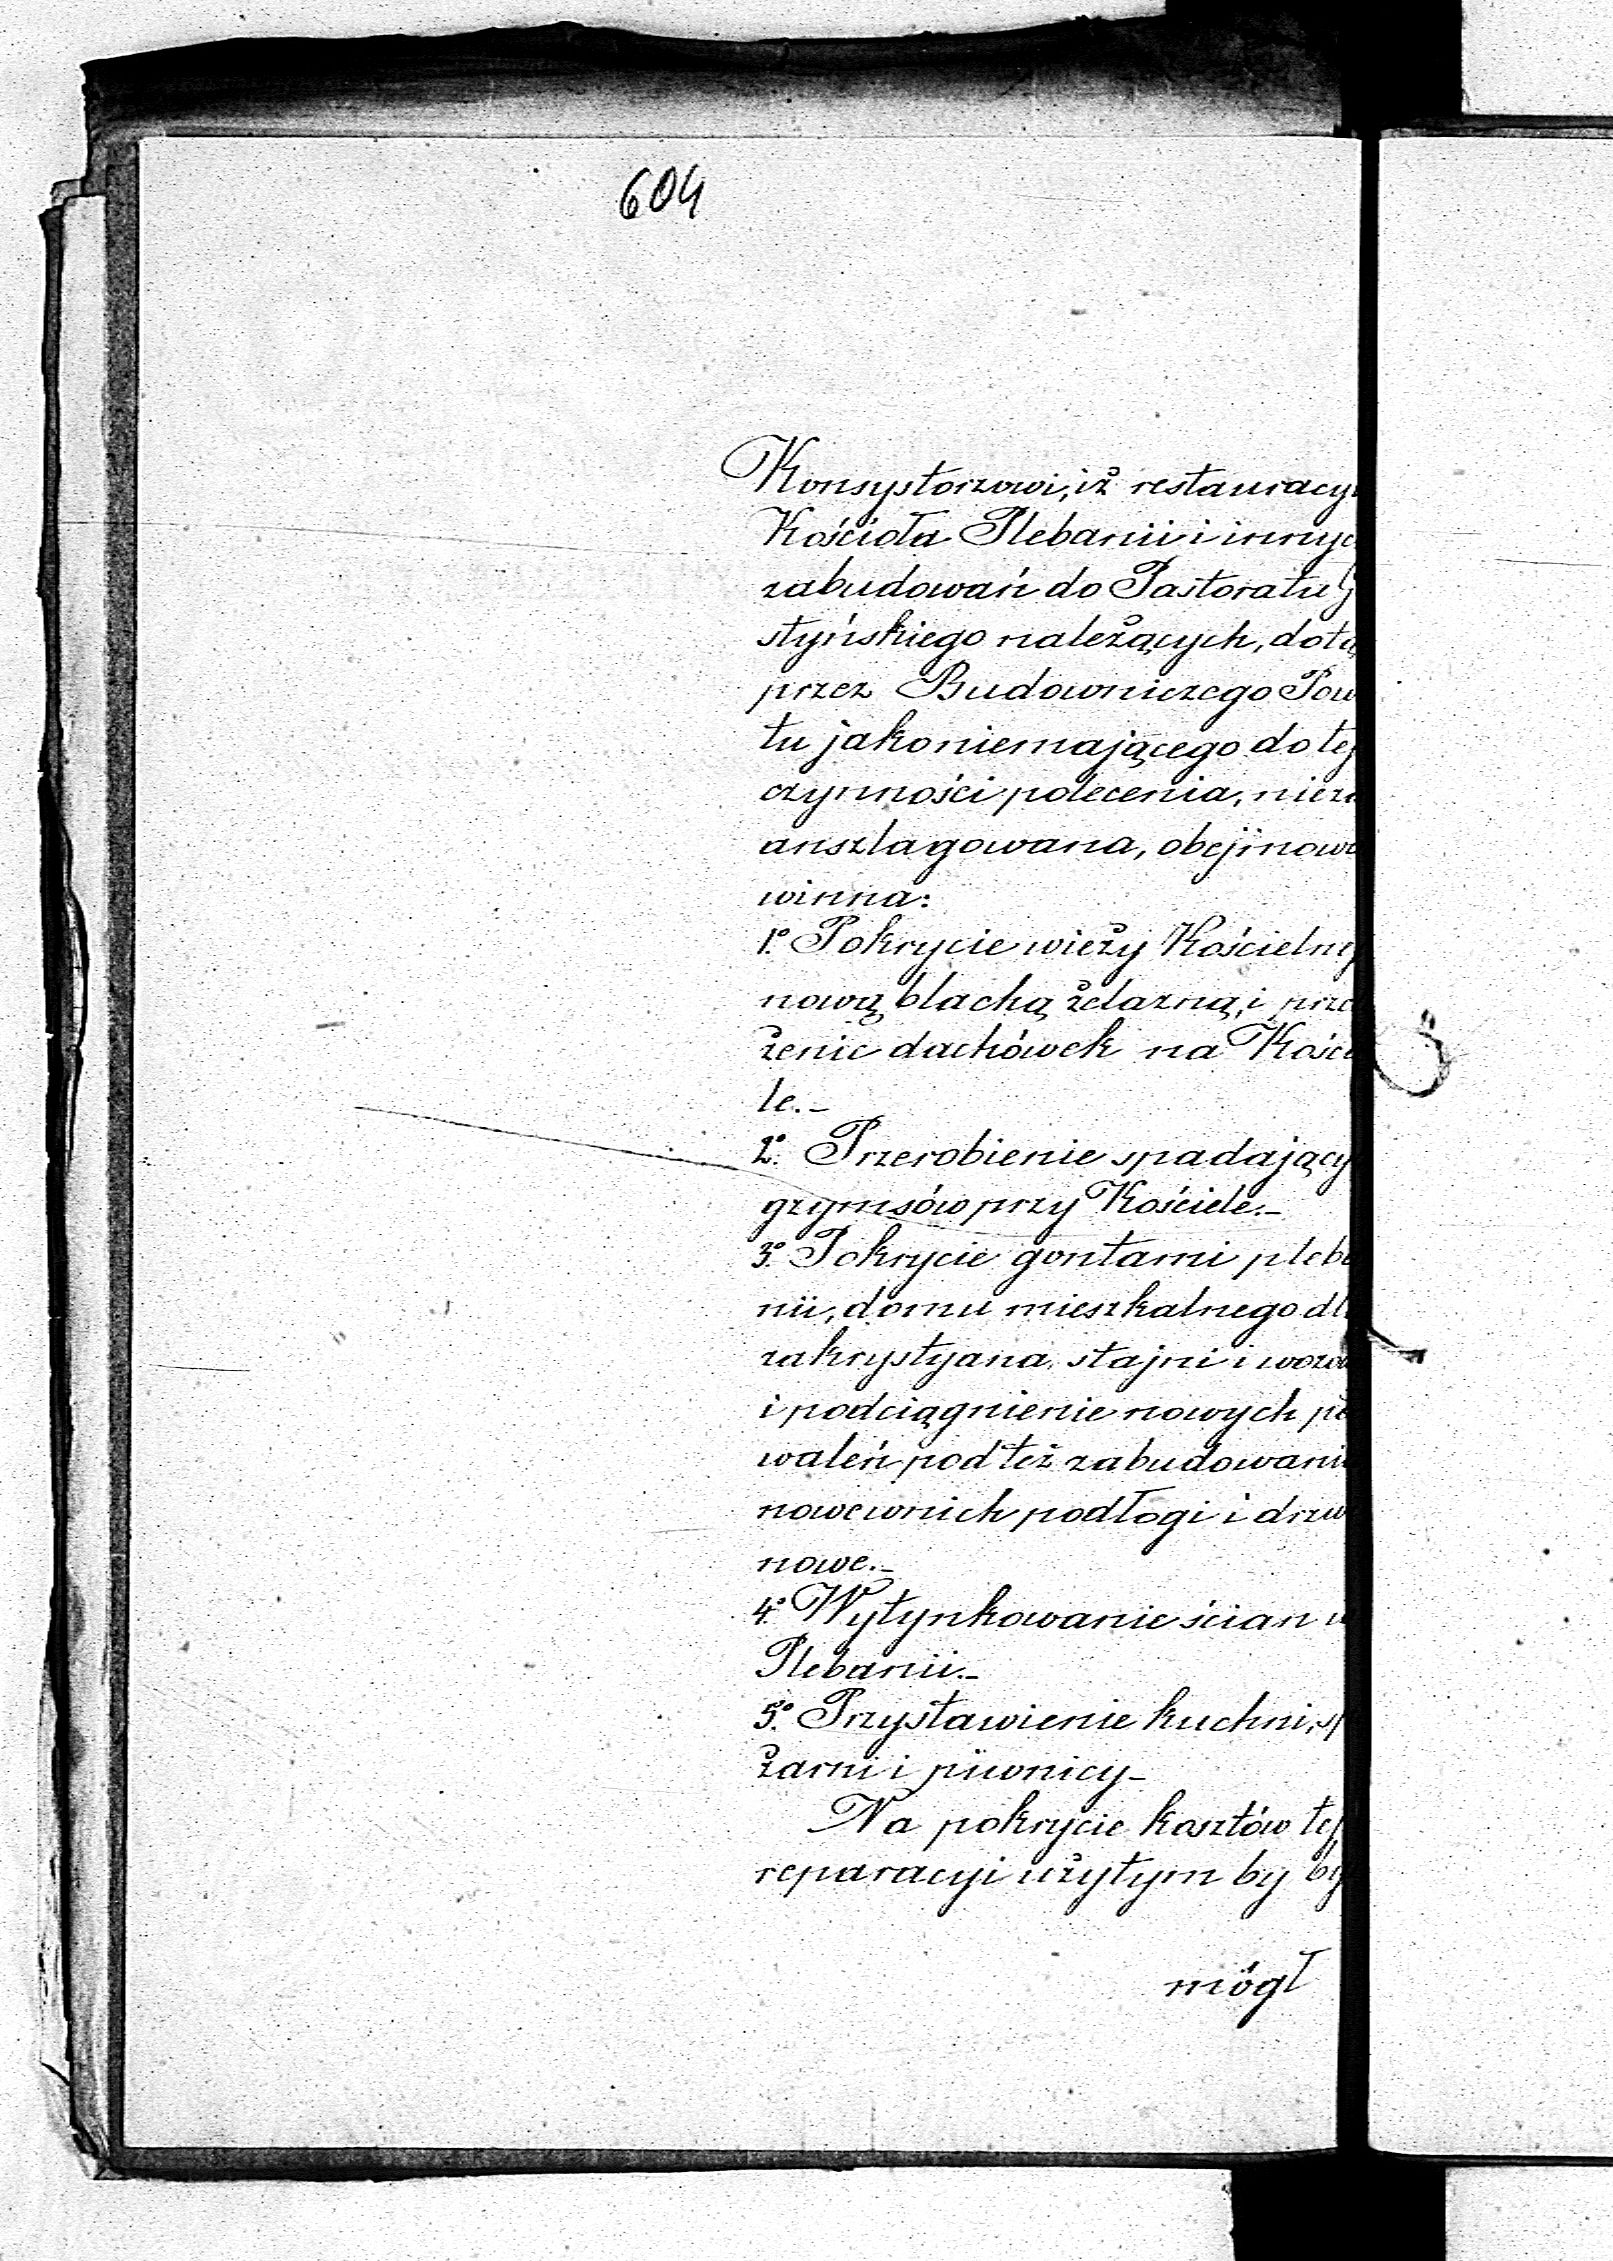 604
Konsystorzowi, iż restauracyi
Kościoła Plebanii i innyc
zabudowań do Pastoratu
styńskiego należących, dotą
przez Budowniczego Pow
tu jako niemającego do tej
czynności polecenia, niez
anszlagowana, obejmowa
winna:
1o. Pokrycie wieży Kościelnej
nową blachą żelazną, i prze
żenie dachówek na Kości
le.-
2o. Przerobienie spadający
grzymsów przy Kościele.-
3o. Pokrycie gontami pleba
nii, domu mieszkalnego dla
zakrystyana, stajni i wozo
i podciągnienie nowych po
waleń pod też zabudowani
nowe w nich podłogi i drzw
nowe.-
4o. Wytynkowanie ścian w
Plebanii.-
5o. Przystawienie kuchni, sp
żarni i piwnicy-
Na pokrycie kosztów tej
reparacyi użytym by by
mógł